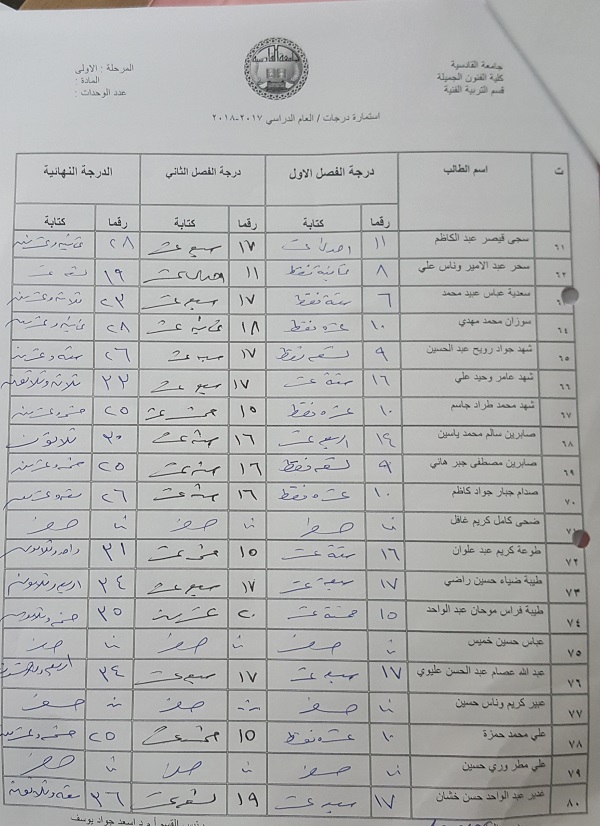 جامعة القادسية
كلية الفنون الجميلة
قسم التربية الفنية
المرحلة : الاولى
المادة :
عدد الوحدات :
استمارة درجات / العام الدراسي ٢٠١٧-٢٠١٨
ت اسم الطالب درجة الفصل الاول درجة الفصل الثاني الدرجة النهائية
رقما كتابة رقما كتابة رقما كتابة
٦١ سجى قيصر عبد الكاظم ١١ احدى عشر ١٧ سبع عشر ٢٨ ثمانية وعشرين
٦٢ سحر عبد الامير وناس علي ٨ ثمانية فقط ١١ احدى عشر ١٩ تسعة عشر
سعدية عباس عبيد محمد ٦ ستة فقط ١٧ سبع عشر ٢٣ ثلاثة وعشرين
٦٤ سوزان محمد مهدي ١٠ عشرة فقط ١٨ ثمانية عشر ٢٨ ثمانية وعشرين
٦٥ شهد جواد رويح عبد الحسين ٩ تسعة فقط ١٧ سبع عشر ٢٦ ستة وعشرين
٦٦ شهد عامر وحيد علي ١٦ ستة عشر ١٧ سبع عشر ٣٣ ثلاثة وثلاثون
٦٧ شهد محمد طراد جاسم ١٠ عشرة فقط ١٥ خمس عشر ٢٥ خمسة وعشرين
٦٨ صابرين سالم محمد ياسين ١٤ اربع عشر ١٦ ستة عشر ٣٠ ثلاثون
٦٩ صابرين مصطفى جبر هاني ٩ تسعة فقط ١٦ ستة عشر ٢٥ خمسة وعشرين
٧٠ صدام جبار جواد كاظم ١٠ عشرة فقط ١٦ ستة عشر ٢٦ ستة وعشرين
٧١ ضحى كامل كريم غافل صفر صفر صفر
٧٢ طوعة كريم عبد علوان ١٦ ستة عشر ١٥ خمس عشر ٣١ واحد وثلاثون
٧٣ طيبة ضياء حسين راضي ١٧ سبعة عشر ١٧ سبع عشر ٣٤ اربع وثلاثون
٧٤ طيبة فراس موحان عبد الواحد ١٥ خمسة عشر ٢٠ عشرين ٣٥ خمسة وثلاثون
٧٥ عباس حسين خميس صفر صفر صفر
٧٦ عبد الله عصام عبد الحسن عليوي ١٧ سبع عشر ١٧ سبع عشر ٣٤
٧٧ عبير كريم وناس حسين صفر صفر صفر
٧٨ علي محمد حمزة ١٠ عشرة فقط ١٥ خمس عشر ٢٥ خمسة وعشرين
٧٩ علي مطر وري حسين صفر صفر صفر
٨٠ غدير عبد الواحد حسن خشان ١٧ سبع عشر ١٩ تسع عشر ٣٦ ستة وثلاثون
القسم أ.م.د اسعد جواد يوسف